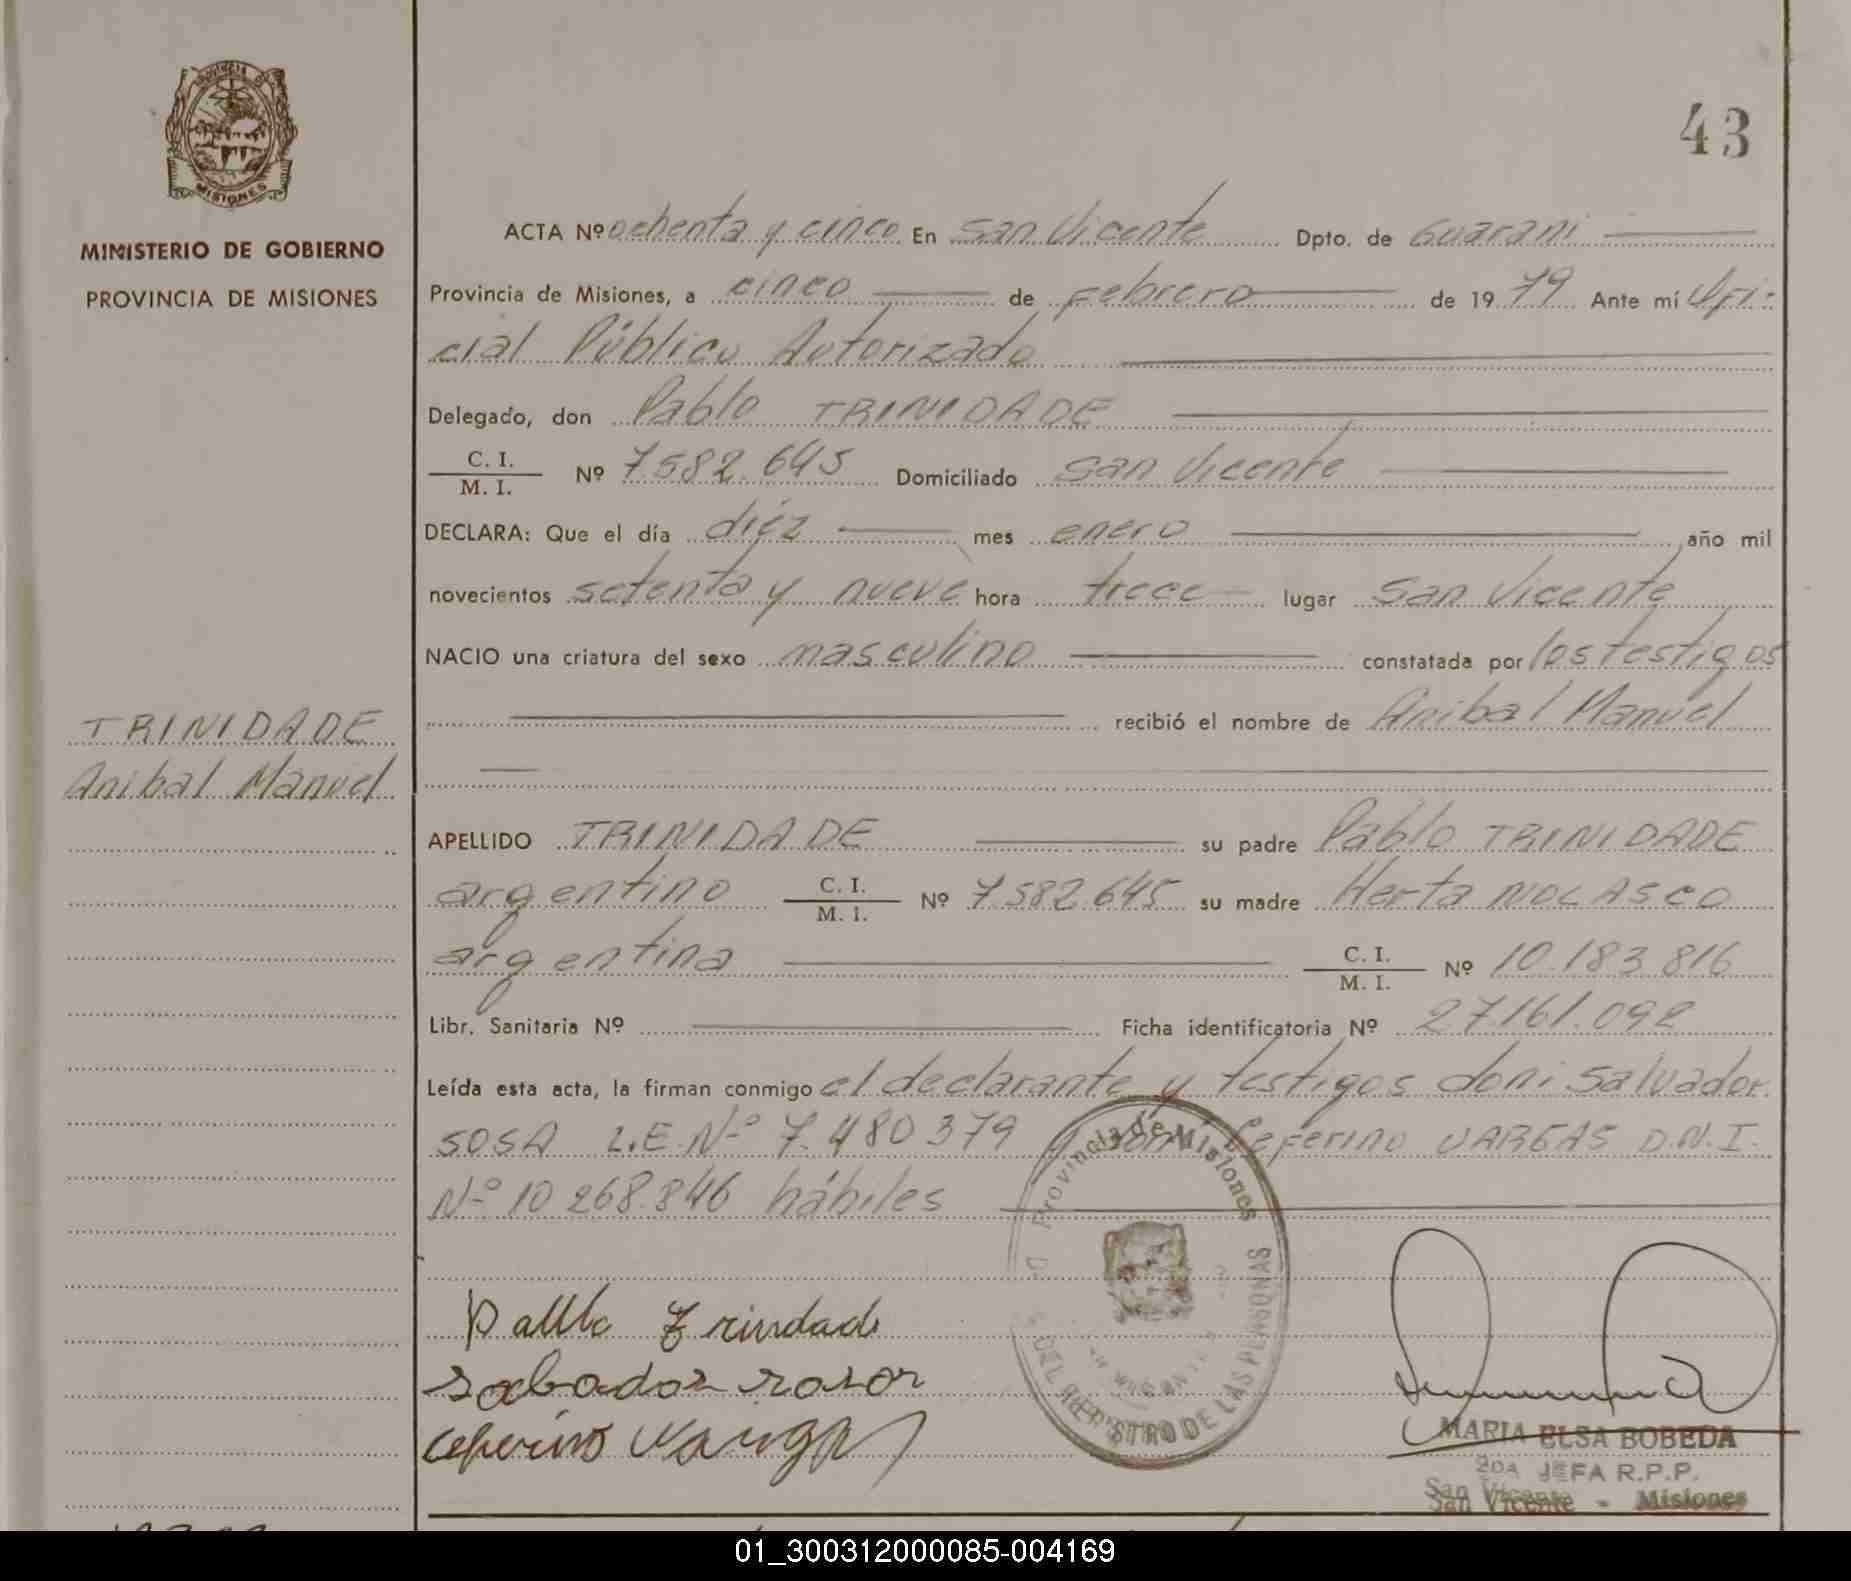 PROVINCIA DE
MISIONES
MINISTERIO DE GOBIERNO
PROVINCIA DE MISIONES
TRINIDADE
Anibal Manuel
43
ACTA Nº ochenta y cinco En San Vicente Dpto. de Guarani
Provincia de Misiones, a cinco de Febrero de 1979 Ante mí Ofi-
cial Público Autorizado
Delegado, don Pablo TRINIDADE
C. I.
M. I. Nº 7.582.645 Domiciliado San Vicente
DECLARA: Que el día diéz mes enero año mil
novecientos setenta y nueve hora trece lugar San Vicente
NACIO una criatura del sexo masculino constatada por los testigos
recibió el nombre de Anibal Manuel
APELLIDO TRINIDADE su padre Pablo TRINIDADE
argentino C. I.
M. I. Nº 7.582.645 su madre Herta NOLASCO
argentina C. I.
M. I. Nº 10.183.816
Libr. Sanitaria Nº Ficha identificatoria Nº 27.161.092
Leída esta acta, la firman conmigo el declarante y testigos don: Salvador
SOSA L.E.Nº 7.480379 y don: Ceferino VARGAS D.N.I.
Nº 10 268.846 hábiles
Provincia de Misiones
DEL REGISTRO DE LAS PERSONAS
Ceferino Vargas
MARIA ELSA BOBEDA
2DA JEFA R.P.P.
San Vicente - Misiones
01_300312000085-004169